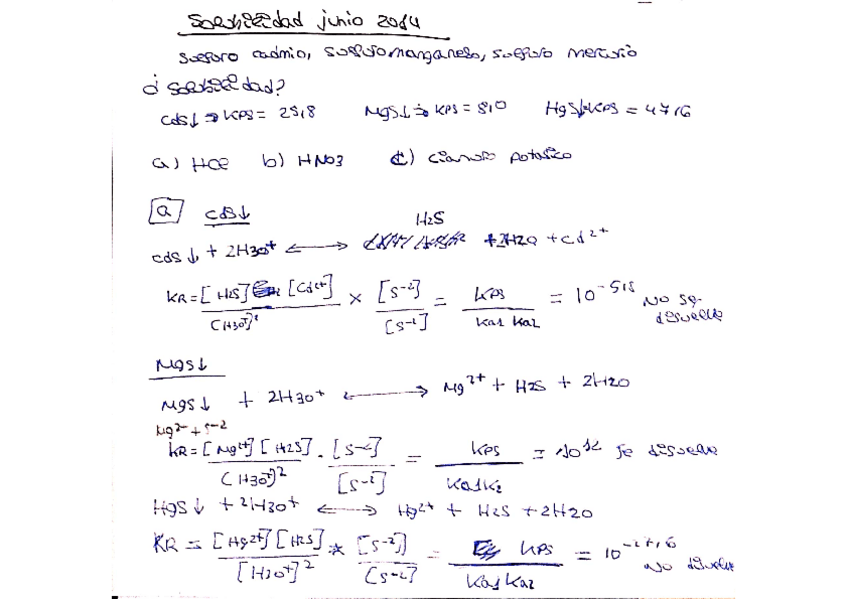 Solubilidad junio 2014
sulfuro cadmio, sulfuro manganeso, sulfuro mercurio
¿ solubilidad?
CdS↓ ⇒ KPS = 25,8 MgS↓ ⇒ KPS = 8,0 HgS↓ KPS = 47,6
a) HCl b) HNO3 c) cianuro potasico
a CdS↓
H2S
CdS↓ + 2H3O+ ⟷ + 2H2O + Cd2+
KR = [H2S] [Cd2+] / (H3O+)2 × [S-2] / [S-2] = KPS / Ka1 Ka2 = 10-5,8 No se disuelve
MgS↓
MgS↓ + 2H3O+ ⟷ Mg2+ + H2S + 2H2O
Mg2+ + S-2
KR = [Mg2+] [H2S] / (H3O+)2 · [S-2] / [S-2] = KPS / Ka1K2 = 1012 se disuelve
HgS↓ + 2H3O+ ⟷ Hg2+ + H2S + 2H2O
KR = [Hg2+] [H2S] / [H3O+]2 * [S-2] / [S-2] = KPS / Ka1 Ka2 = 10-27,6 No disuelve